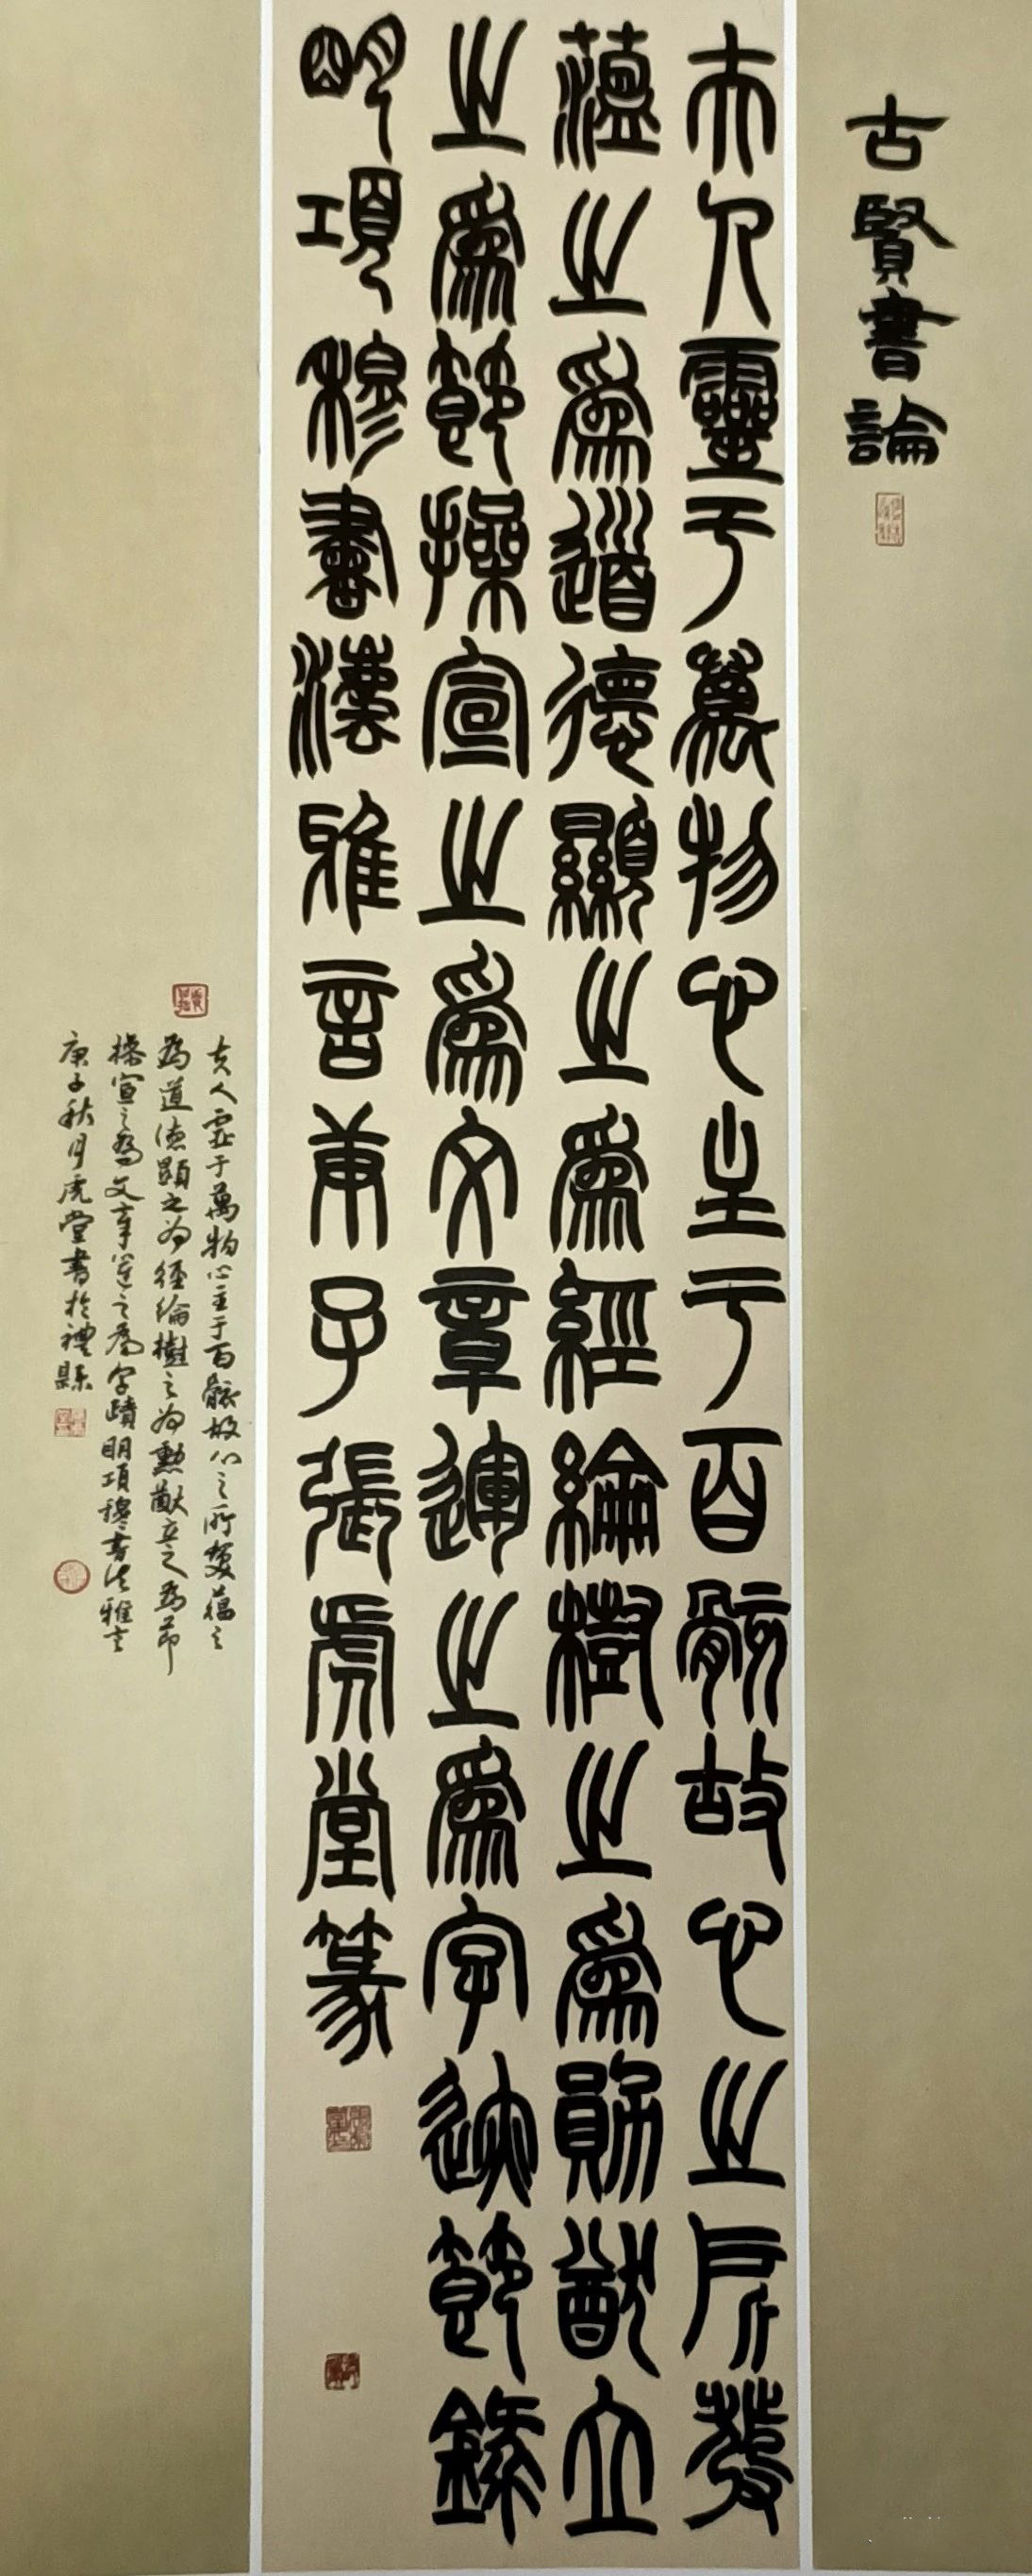 古賢書論
夫人靈于萬物心主于百骸故心之所發
蘊之為道德顯之為經綸樹之為勛猷立
之為節操宣之為文章運之為字跡節錄
明項穆書法雅言甫子張虎堂篆
夫人靈于萬物心主于百骸故心之所發蘊之
為道德顯之為經綸樹之為勳猷立之為節
操宣之為文章運之為字蹟明項穆書法雅言
庚子秋月虎堂書於禮縣